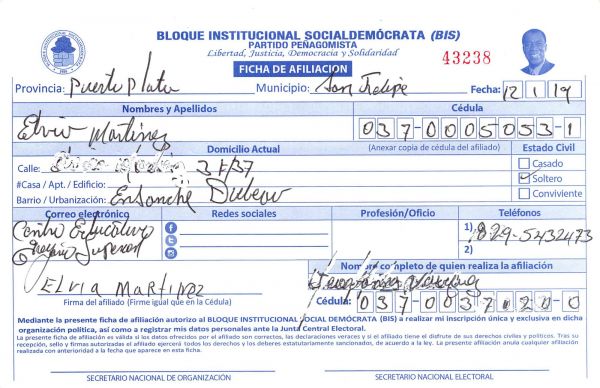 BLOQUE INSTITUCIONAL SOCIALDEMÓCRATA (BIS)
PARTIDO PEÑAGOMISTA
Libertad, Justicia, Democracia y Solidaridad
43238
FICHA DE AFILIACION
Provincia: Puerto Plata Municipio: San Felipe Fecha: 12/1/19
Nombres y Apellidos Cédula
Elvia Martinez 037-0005053-1
Domicilio Actual (Anexar copia de cédula del afiliado) Estado Civil
Calle: 31/37 Casado
#Casa / Apt. / Edificio: Soltero
Barrio / Urbanización: Ensanche Dubeau Conviviente
Correo electrónico Redes sociales Profesión/Oficio Teléfonos
Centro Educativo 1) 829-5432473
Superior 2)
Nombre completo de quien realiza la afiliación
ELVIA MARTINEZ
Firma del afiliado (Firme igual que en la Cédula) Cédula: 037-0037020-0
Mediante la presente ficha de afiliación autorizo al BLOQUE INSTITUCIONAL SOCIAL DEMÓCRATA (BIS) a realizar mi inscripción única y exclusiva en dicha
organización política, así como a registrar mis datos personales ante la Junta Central Electoral.
La presente ficha de afiliación es válida si los datos ofrecidos por el afiliado son correctos, las declaraciones veraces y si el afiliado tiene el disfute de sus derechos civiles y políticos. Tras su
recepción, sello y firmas autorizadas el afiliado ejercerá todos los derechos y los deberes estatutariamente sancionados, de acuerdo a la ley. La presente afiliación anula cualquier afiliación
realizada con anterioridad a la fecha que aparece en esta ficha.
SECRETARIO NACIONAL DE ORGANIZACIÓN SECRETARIO NACIONAL ELECTORAL